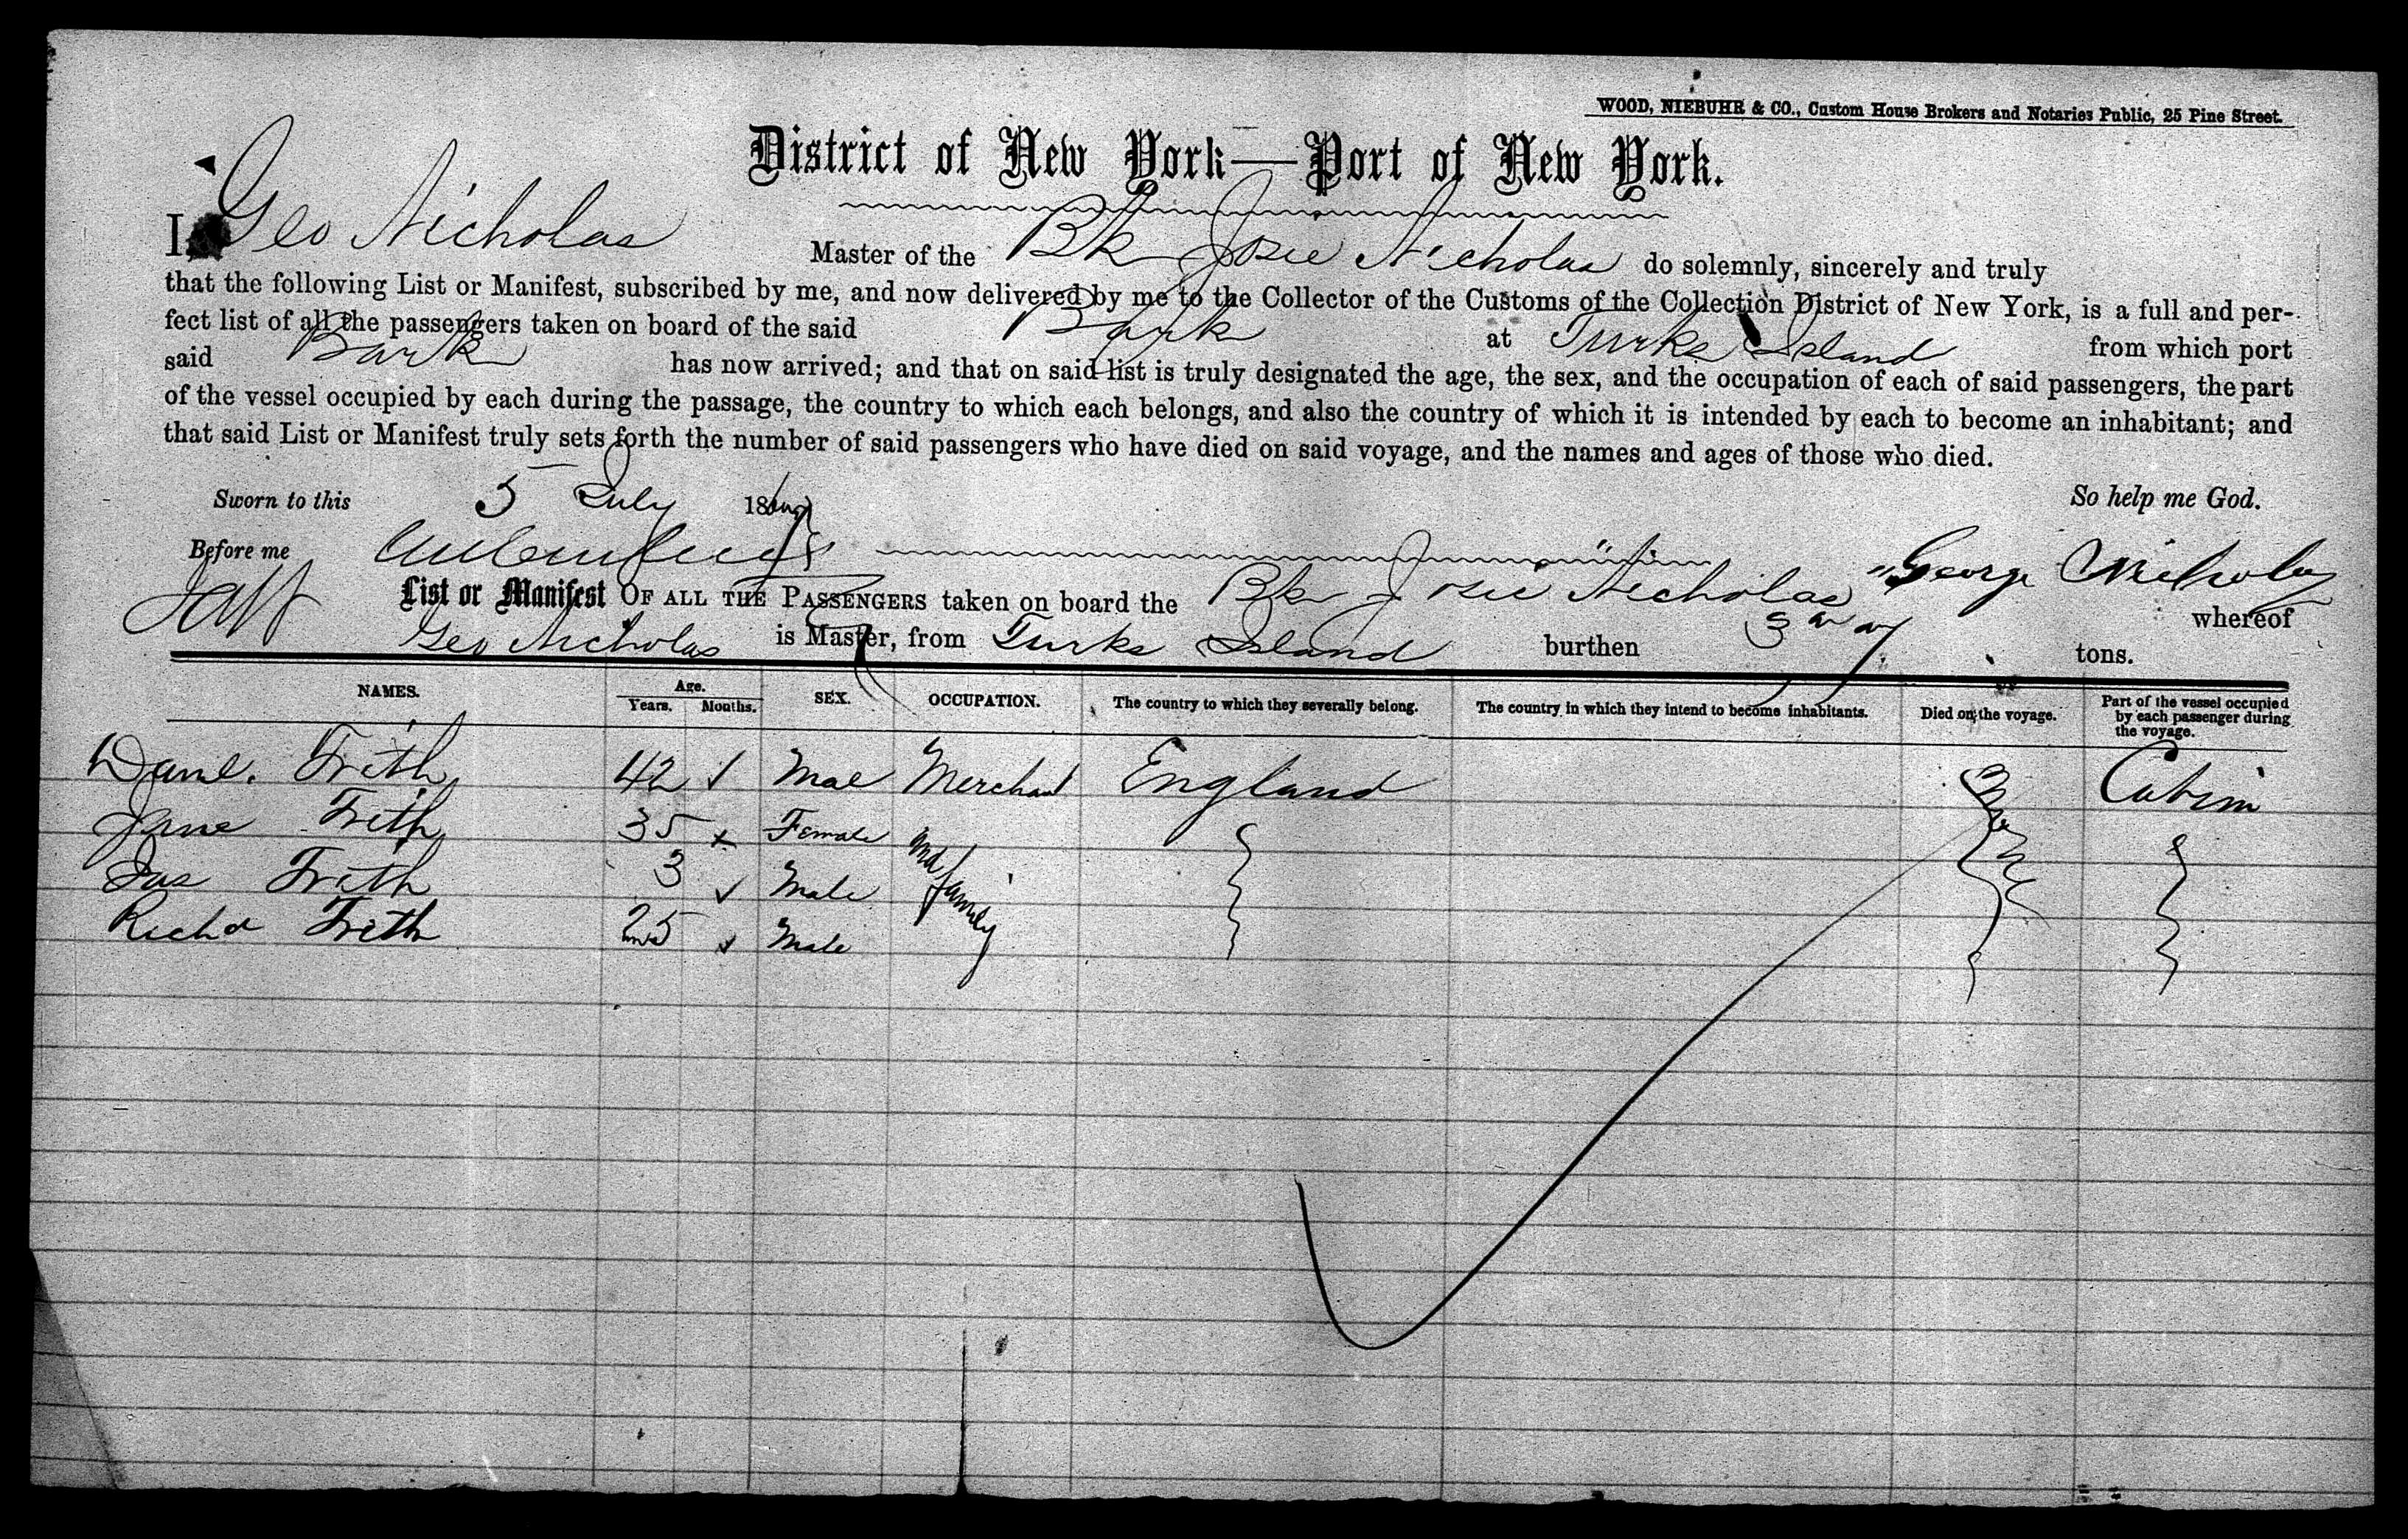 WOOD, NIEBUHR & CO., Custom House Brokers and Notaries Public, 25 Pine Street.
District of New York—Port of New York.
I Geo Nicholas Master of the Bk Josie Nicholas do solemnly, sincerely and truly
that the following List or Manifest, subscribed by me, and now delivered by me to the Collector of the Customs of the Collection District of New York, is a full and per-
fect list of all the passengers taken on board of the said Bark at Turks Island from which port
said Bark has now arrived; and that on said list is truly designated the age, the sex, and the occupation of each of said passengers, the part
of the vessel occupied by each during the passage, the country to which each belongs, and also the country of which it is intended by each to become an inhabitant; and
that said List or Manifest truly sets forth the number of said passengers who have died on said voyage, and the names and ages of those who died.
Sworn to this 5 July 18 So help me God.
Before me George Nicholas
List or Manifest OF ALL THE PASSENGERS taken on board the Bk Josie Nicholas whereof
Geo Nicholas is Master, from Turks Island burthen tons.
NAMES. Age. Years. Months. SEX. OCCUPATION. The country to which they severally belong. The country in which they intend to become inhabitants. Died on the voyage. Part of the vessel occupied by each passenger during the voyage.
Danl. Frith 42 Mae Merchant England Cabin
Jane Frith 35 Female
Jas Frith 3 Male family
Richd Frith 25 Male